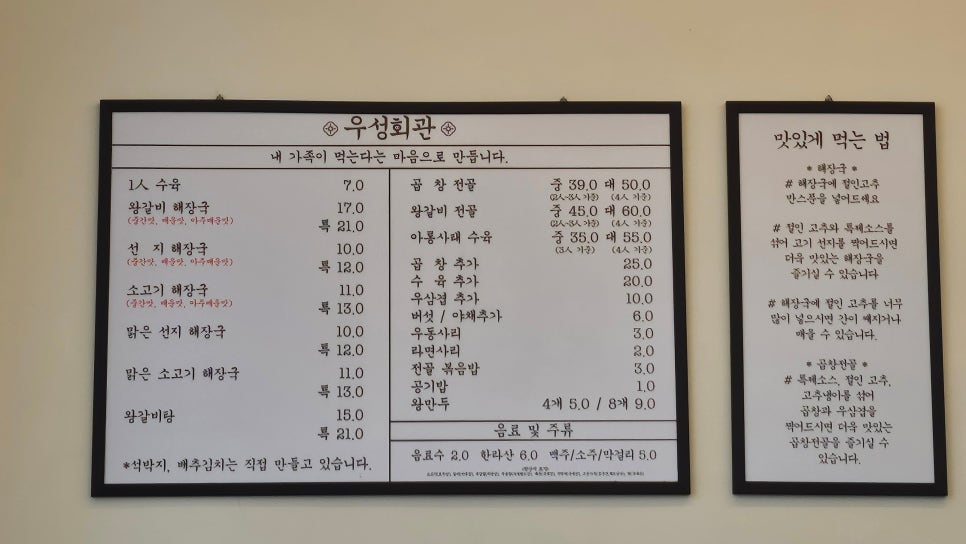 우성회관
내 가족이 먹는다는 마음으로 만듭니다.
1人 수육 7.0
왕갈비 해장국 17.0
(중간맛, 매운맛, 아주매운맛)
특 21.0
선 지 해장국 10.0
(중간맛, 매운맛, 아주매운맛)
특 12.0
소고기 해장국 11.0
(중간맛, 매운맛, 아주매운맛)
특 13.0
맑은 선지 해장국 10.0
특 12.0
맑은 소고기 해장국 11.0
특 13.0
왕갈비탕 15.0
특 21.0
*석박지, 배추김치는 직접 만들고 있습니다.
곱 창 전골 중 39.0 대 50.0
(2人-3人 기준) (4人 기준)
왕갈비 전골 중 45.0 대 60.0
(2人-3人 기준) (4人 기준)
아롱사태 수육 중 35.0 대 55.0
(3人 기준) (4人 기준)
곱 창 추가 25.0
수 육 추가 20.0
우삼겹 추가 10.0
버섯 / 야채추가 6.0
우동사리 3.0
라면사리 2.0
전골 볶음밥 3.0
공기밥 1.0
왕만두 4개 5.0 / 8개 9.0
음료 및 주류
음료수 2.0 한라산 6.0 맥주/소주/막걸리 5.0
맛있게 먹는 법
* 해장국 *
# 해장국에 절인고추
반스푼을 넣어드세요
# 절인 고추와 특제소스를
섞어 고기 선지를 찍어드시면
더욱 맛있는 해장국을
즐기실 수 있습니다
# 해장국에 절인 고추를 너무
많이 넣으시면 간이 쎄지거나
매울 수 있습니다.
* 곱창전골 *
# 특제소스, 절인 고추,
고추냉이를 섞어
곱창과 우삼겹을
찍어드시면 더욱 맛있는
곱창전골을 즐기실 수
있습니다.